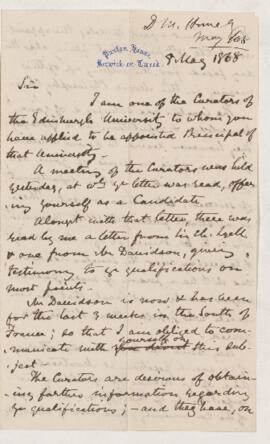 D M. Home
May 1868
Paxton House,
Berwick-on-Tweed.
8 May 1868
Sir
I am one of the Curators of
the Edinburgh University to whom you
have applied to be appointed Principal of
that University.
A meeting of the Curators was held
yesterday, at wh yr letter was read, offer-
ing yourself as a Candidate.
Alongst with that letter, there was
read by me a letter from Sir Ch. Lyell
& one from Mr Davidson, giving
testimony to yr qualifications on
most points.
Mr Davidson is now & has been
for the last 3 weeks in the South of
France; so that I am obliged to com-
yourself on
municate with you direct this sub-
ject.
The Curators are desirous of obtain-
ing farther information regarding
yr qualifications; – and they have, on